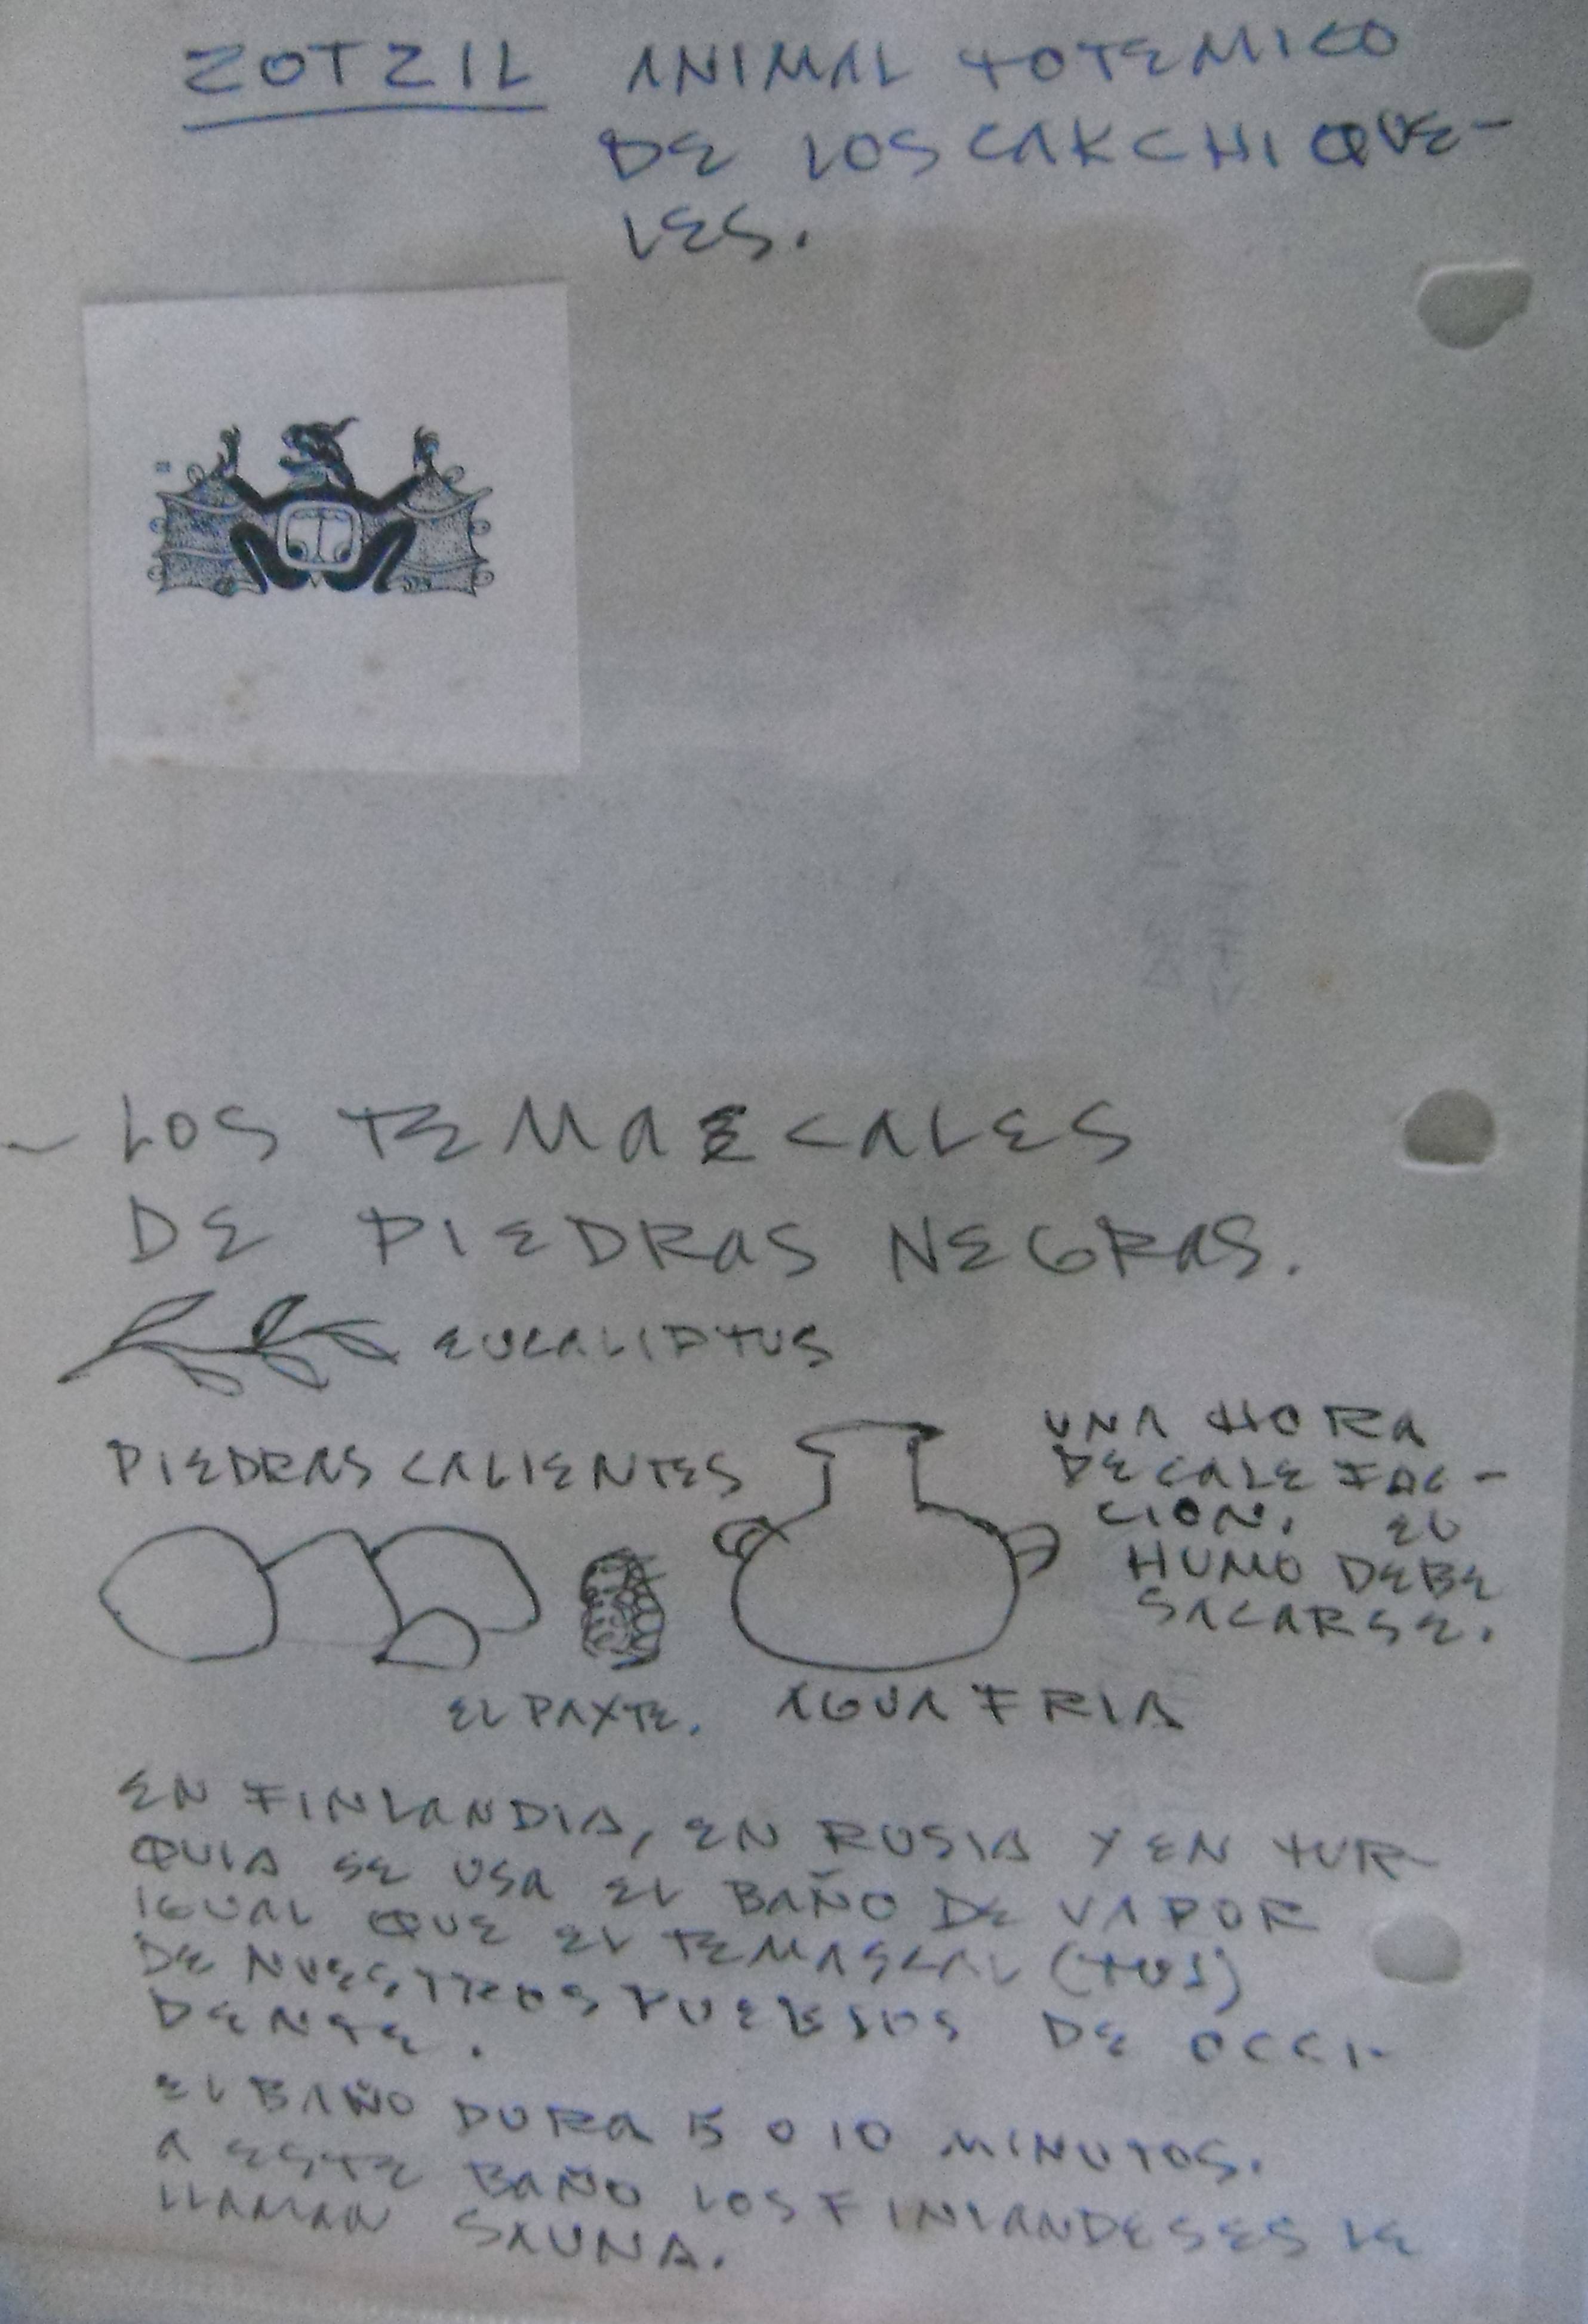 ZOTZIL ANIMAL TOTEMICO
DE LOS CAKCHIQUE-
LES.
- LOS TEMASCALES
DE PIEDRAS NEGRAS.
EUCALIPTUS
PIEDRAS CALIENTES
UNA HORA
DE CALEFAC-
CION. EL
HUMO DEBE
SACARSE.
EL PAXTE. AGUA FRIA
EN FINLANDIA, EN RUSIA Y EN TUR-
QUIA SE USA EL BAÑO DE VAPOR
IGUAL QUE EL TEMASCAL (TUJ)
DE NUESTROS PUEBLOS DE OCCI-
DENTE.
EL BAÑO DURA 5 O 10 MINUTOS.
A ESTE BAÑO LOS FINLANDESES LE
LLAMAN SAUNA.